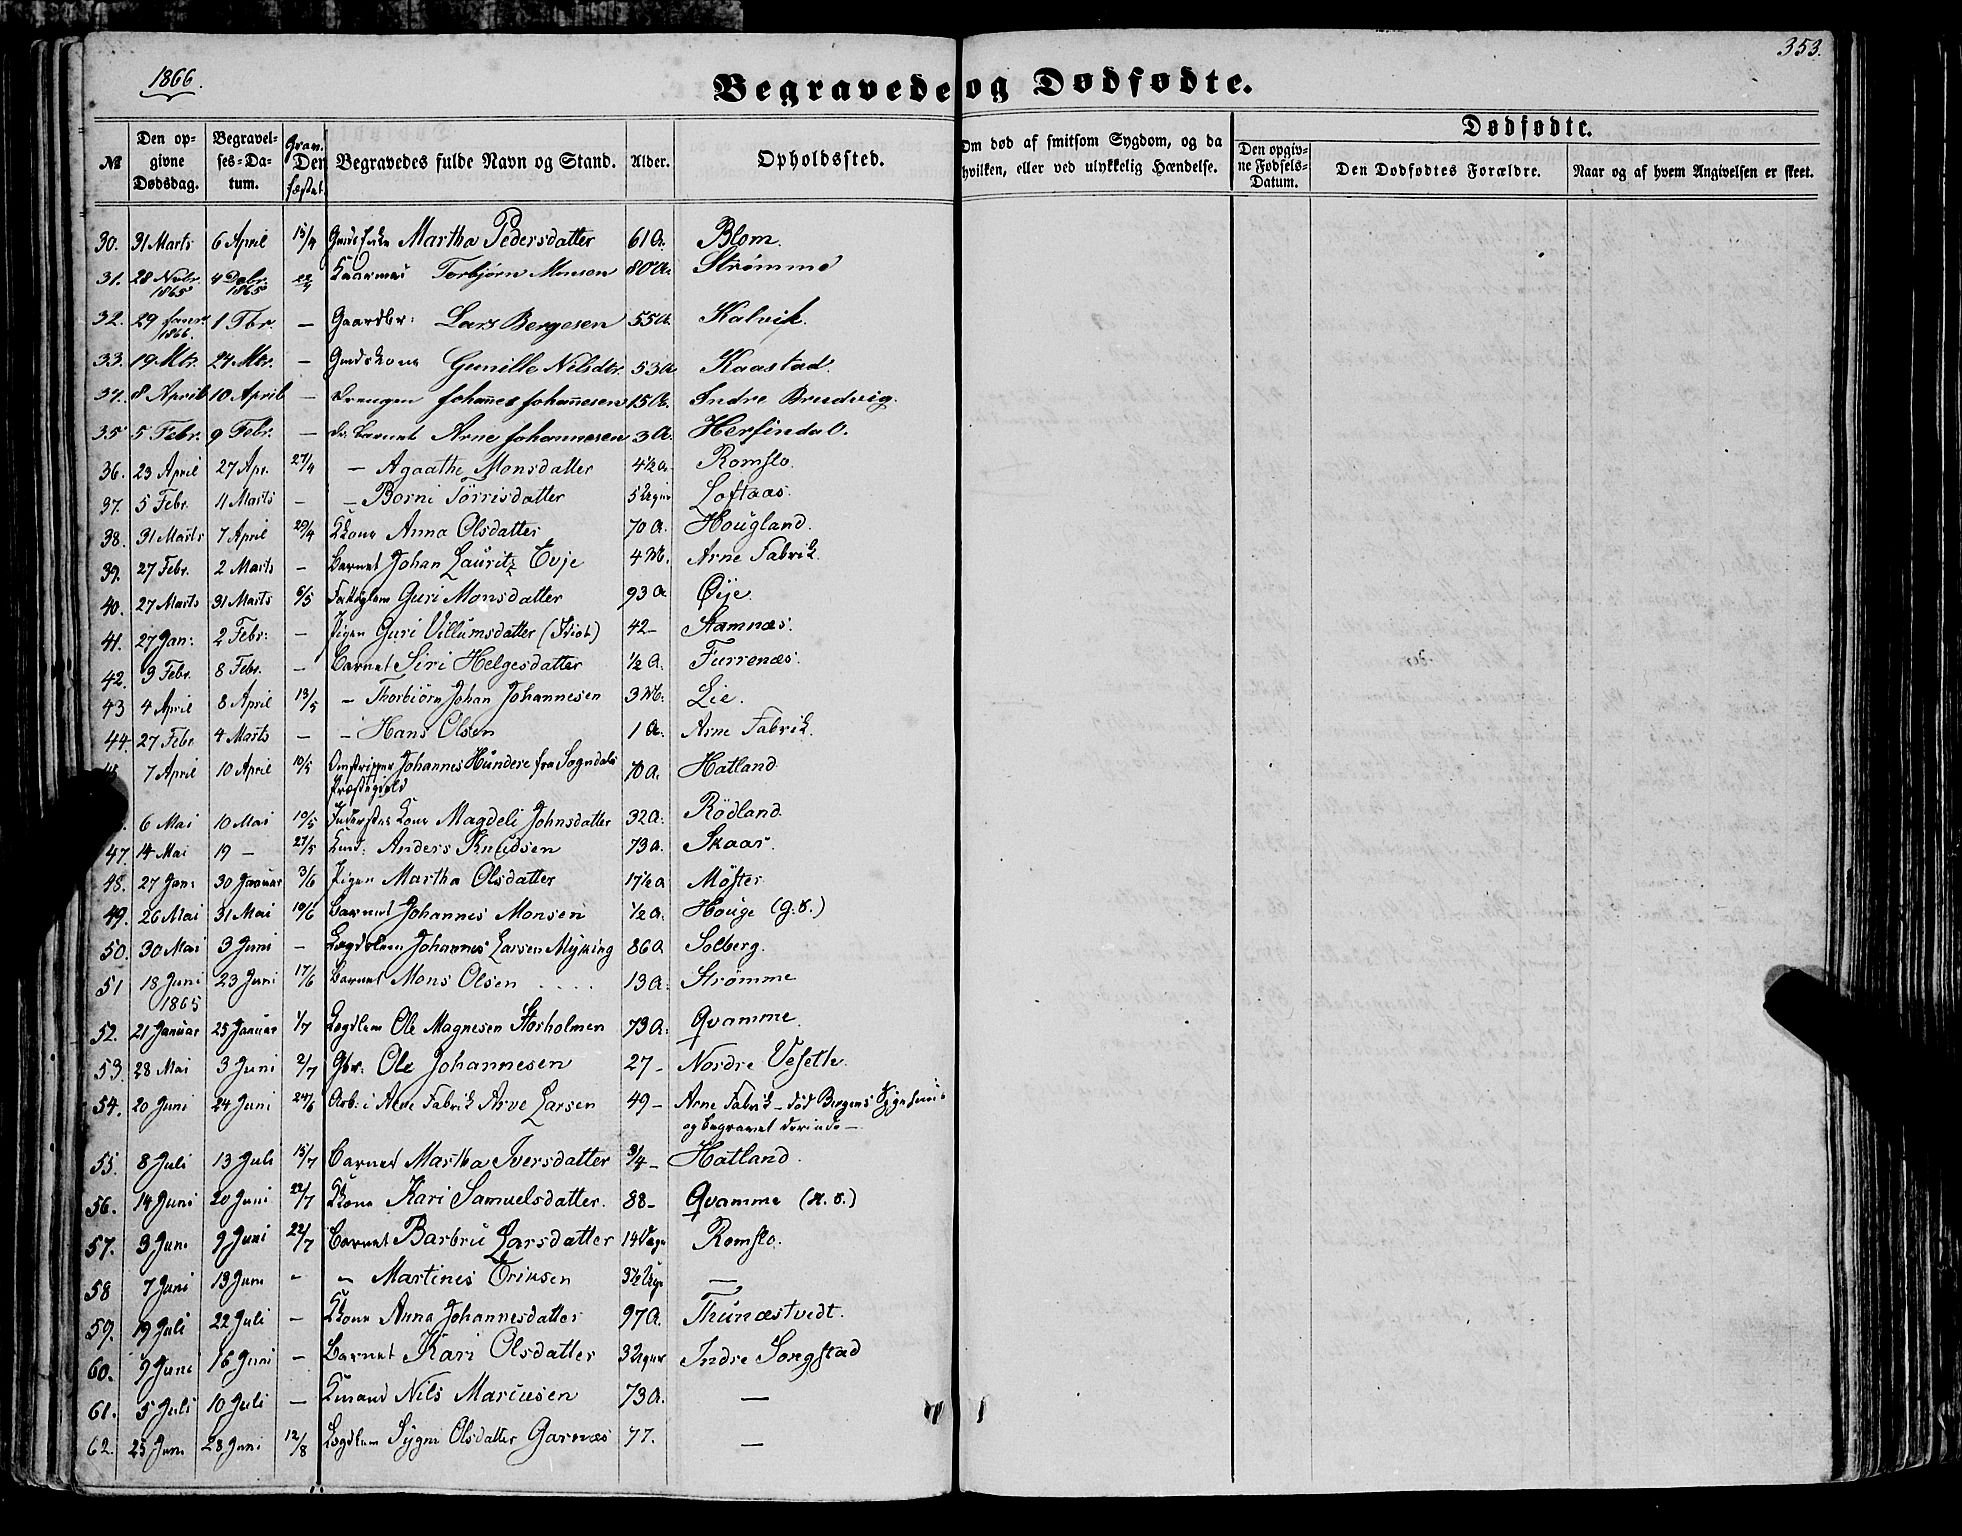 353.
1866.
Begravede og Dødfødte.
Dødfødte.
№
Den opgivne Dødsdag.
Begravelses-Datum.
Den
Begravedes fulde Navn og Stand.
Alder.
Opholdssted.
Om død af smitsom Sygdom, og da hvilken, eller ved ulykkelig Hændelse.
Den opgivne Fødsels-Datum.
Den Dødfødtes Forældre.
Naar og af hvem Angivelsen er skeet.
30. 31 Marts 6 April 15/4 Martha Pedersdatter 61 A. Blom.
31. 28 Nvbr. 1865 4 Debr. 1865 22/4 Kaarmand Torbjørn Monsen 80 A. Strømme
32. 29 Janr. 1866. 1 Fbr. — Gaardbr: Lars Bergesen 55 A. Kalvik.
33. 19 Mts. 24 Mts. — Gunille Nilsdtr. 53 A Kaastad.
34. 8 April 10 April — Drengen Johannes Johannesen 15 A. Indre Brudvig.
35 5 Febr. 9 Febr. — Barnet Arne Johannesen 3 A. Herfindal.
36. 23 April 27 Apr. 27/4 — Agaathe Monsdatter 4½ A. Romslo.
37. 5 Febr. 11 Marts — — Borni Torrisdatter 5 Uger Loftaas.
38. 31 Marts 7 April 29/4 Kkone Anna Olsdatter 70 A. Hougland.
39. 27 Febr. 2 Marts — Barnet Johan Lauritz Evje 4 M. Arne Fabrik.
40. 27 Marts 31 Marts 6/5 Guri Monsdatter 93 A Øije.
41. 27 Jan: 2 Febr: — Pigen Guri Villumsdatter (Idiot) 42 — Stamnæs.
42. 3 Febr. 8 Febr. — Barnet Siri Helgesdatter ½ A. Furrenæs.
43 4 April 8 April 13/5 — Thorbiörn Johan Johannesen 3 M. Lie.
44. 27 Febr 4 Marts — — Hans Olsen 1 A. Arne Fabrik.
7 April 10 April 10/5 Johannes Hundere fra Sogndals 70 A. Hatland
Præstegield
6 Mai 10 Mai 10/5 Inderstes Kone Magdeli Johnsdatter 32 A. Rödland
47. 14 Mai 19 — 27/5 Anders Knudsen 73 A. Skaar.
48. 27 Jan: 30 Januar 3/6 Pigen Martha Olsdatter 17½ A Möster
49. 26 Mai 31 Mai 10/6 Barnet Johannes Monsen ½ A. Houge
50. 30 Mai 3 Juni — Lægdslem Johannes Larsen Myking 86 A Solberg.
51 18 Juni 1865 23 Juni 17/6 Barnet Mons Olsen . . . . 13 A. Strömme
52. 21 Januar 25 Januar 1/7 Lægdlem Ole Magnesen Storholmen 73 A. Qvamme.
53. 28 Mai 3 Juni 2/7 Gbr. Ole Johannesen 27 — Nordre Vesetle.
54. 20 Juni 24 Juni 24/6 Arb: i Arne Fabrik Arve Larsen 49 — Arne Fabrik — död Bergens
og begravet derinde —
55. 8 Juli 13 Juli 15/7 Barnet Martha Iversdatter ¾ — Hatland.
56. 14 Juni 20 Juni 22/7 Kkone Kari Samuelsdatter. 88 — Qvamme
57. 3 Juni 9 Juni 22/7 Barnet Barbru Larsdatter 14 Dage Romslo.
58 7 Juni 13 Juni — — Martines Eriksen 3½ Uge —
59. 19 Juli 22 Juli — Kkone Anna Johannesdatter 97 A. Thunæstvedt.
60. 9 Juni 16 Juni — Barnet Kari Olsdatter 3 Uger Indre Songstad
61. 5 Juli 10 Juli — Nils Mariusen 73 A. —
62. 25 Juni 28 Juni 12/8 Lægdlem Sygni Olsdatter Garnæs 77. —